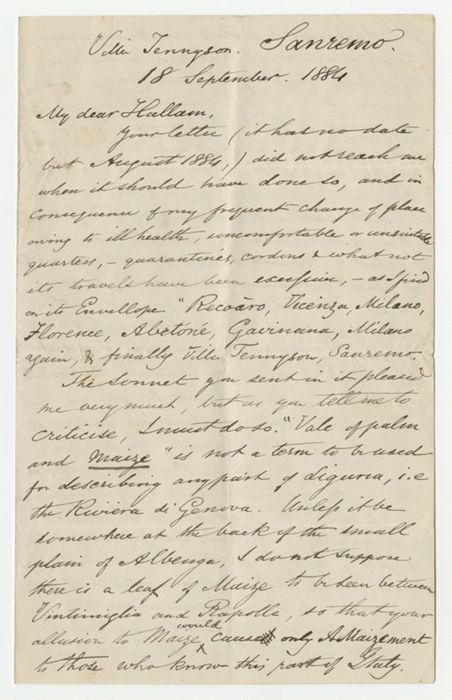 Villa Tennyson. Sanremo.
18 September. 1884
My dear Hallam,
Your letter (it has no date
but August 1884,) did not reach me
when it should have done so, and in
consequence of my frequent change of place
owing to ill health, uncomfortable or unsuitable
quarters, – quarantines, cordons & what not
its travels have been excessive, – as I find
on its Envelope "Recoàro, Vicenza, Milano,
Florence, Abetóné, Gavinana, Milano
again, & finally Villa Tennyson, Sanremo.
The Sonnet you sent in it pleased
me very much, but as you tell me to
criticise, I must do so. "Vale of palm
and Maize" is not a term to be used
for describing any part of Liguria, i.e
the Riviera di Genova. Unless it be
somewhere at the back of the small
plain of Albenga, I do not suppose
there is a leaf of Maize to be seen between
Ventimiglia and Rapallo, so that your
allusion to Maize would cause only A Maizement
to those who know this part of Italy.